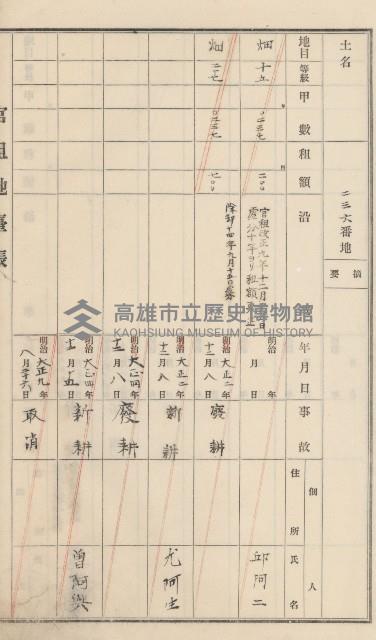 土名
二三六番地
摘要
地目 等級 甲數 租額 沿 年月日 事故 住所 氏名
個人
畑 十五 〇二三七 二〇〇
官租改正九年十二月
明治 年 月 日
邱阿二
畑 〇二三七 七〇〇
明治 大正二年 十二月八日 廢耕
明治 大正二年 十二月八日 新耕 尤阿生
明治 大正四年 十二月八日 廢耕
明治 大正四年 十二月十五日 新耕 曾阿興
明治 大正九年 八月廿六日 取消
官租地臺帳
高雄市立歷史博物館
KAOHSIUNG MUSEUM OF HISTORY